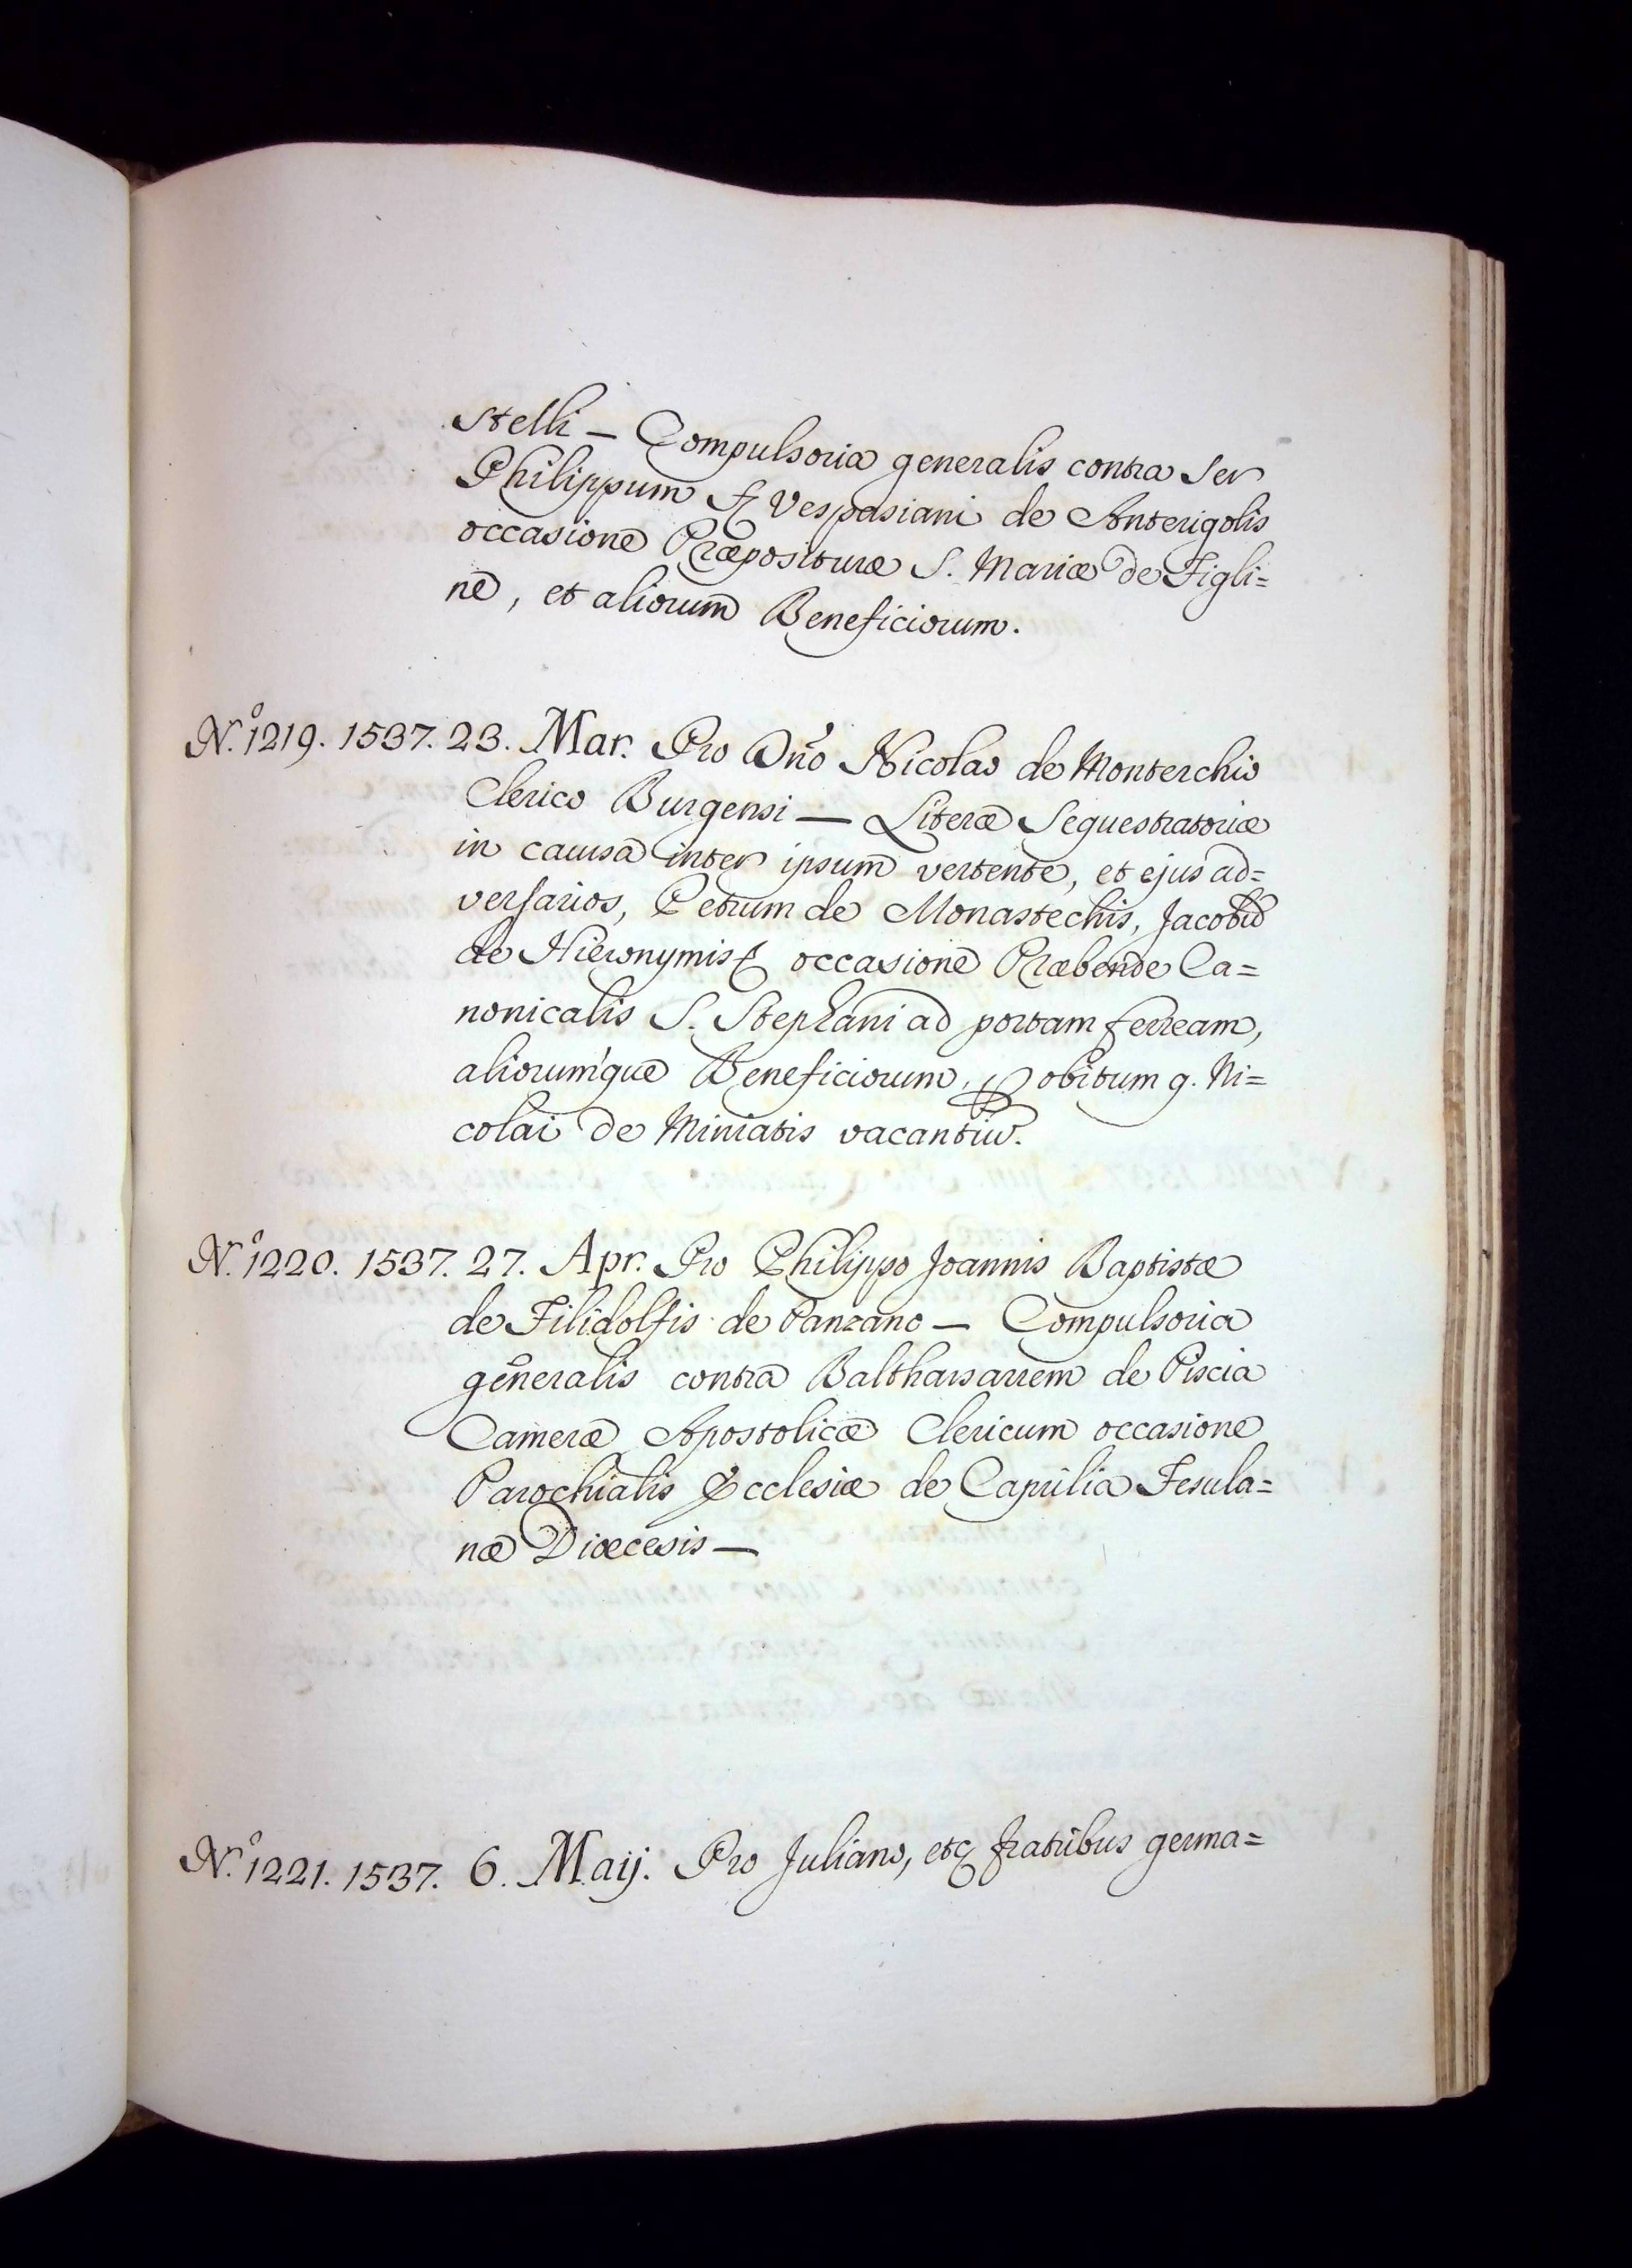 stelli — Compulsoria generalis contra Ser
Philippum f. Vespasiani de Anterigolis
occasione Præposituræ S. Mariæ de Figli=
ne, et aliorum Beneficiorum.
N.º 1219. 1537. 23. Mar. Pro Dño Nicolao de Monterchio
Clerico Burgensi — Literæ Sequestratoriæ
in causa inter ipsum vertente, et ejus ad=
versarios, Petrum de Monastechis, Jacobũ
de Hieronymis &c. occasione Præbende Ca=
nonicalis S. Stephani ad portam ferream,
aliorumque Beneficiorum, ꝑ obitum q. Ni=
colai de Miniatis vacantiũ.
N.º 1220. 1537. 27. Apr. Pro Philippo Joannis Baptistæ
de Filidolfis de Panzano — Compulsoria
generalis contra Balthassarrem de Piscia
Cameræ Apostolicæ Clericum occasione
Parochialis Ecclesiæ de Caprilia Fesula=
næ Diœcesis —
N.º 1221. 1537. 6. Maij. Pro Juliano, etc. fratribus germa=